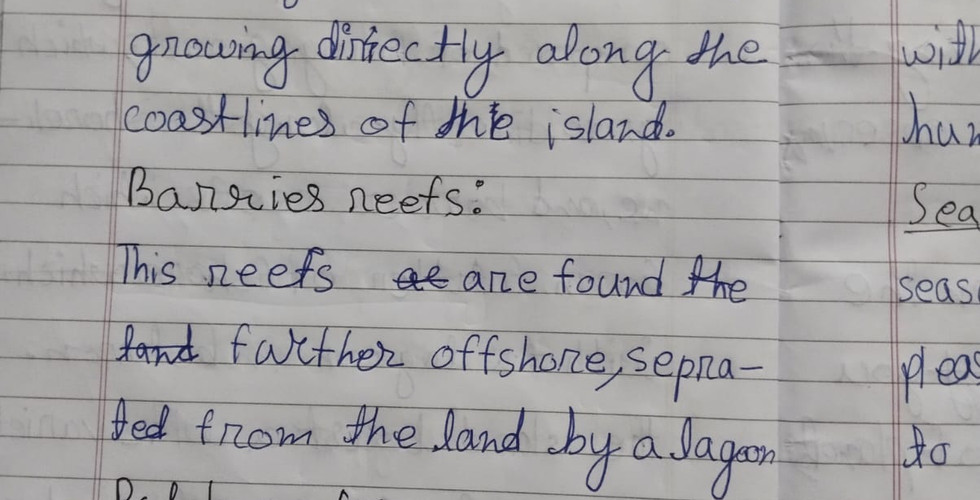 growing directly along the
coastlines of the island.
Barries reefs:
This reefs at are found the
land further offshore, sepra-
ted from the land by a lagoon
with
hun
Sea
seas
pleas
to